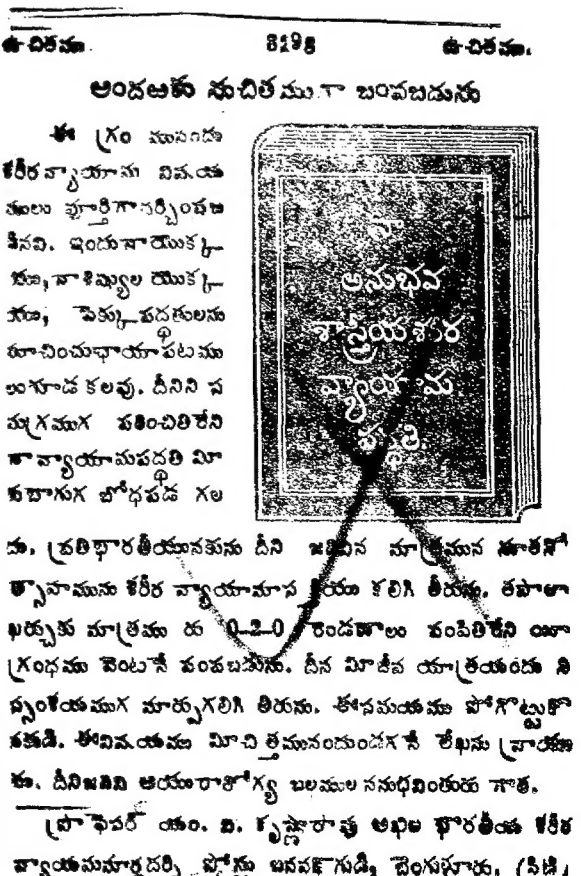 ఉచితము. 8198 ఉచితము.
అందఱకు నుచితముగా బంపబడును
ఈ గ్రం మునందు
శరీరవ్యాయామ విషయ
ములు పూర్తిగా చర్చింపబ
డినవి. ఇందు నాయొక్క
యు, నా శిష్యుల యొక్క
యు, పెక్కు పద్ధతులను
సూచించు ఛాయాపటము
లుకూడ కలవు. దీనిని స
మగ్రముగ పఠించితిరేని
నా వ్యాయామపద్ధతి మీ
కుబాగుగ బోధపడ గల
నా
అనుభవ
శాస్త్రీయశరీర
వ్యాయామ
పద్ధతి
దు. ప్రతిభారతీయునకును దీని జదివిన మాత్రమున నూతనో
త్సాహమును శరీర వ్యాయామాస క్తియు కలిగి తీరును. తపాలా
ఖర్చుకు మాత్రము రు 0-2-0 రెండణాలు పంపితిరేని యీ
గ్రంధము వెంటనే పంపబడును. దీన మీజీవ యాత్రయందు ని
స్సంశయముగ మార్పుగలిగి తీరును. ఈసమయము పోగొట్టుకొ
నకుడి. ఈవిషయము మీచిత్తమునందుండగనే లేఖను వ్రాయు
డు. దీనిజదివి ఆయురారోగ్య బలముల ననుభవింతురు గాత.
ప్రొఫెసర్ యం. వి. కృష్ణారావు అఖిల భారతీయ శరీర
వ్యాయమమార్గదర్శి పోస్టు బసవనగుడి, బెంగుళూరు, (సిటీ)